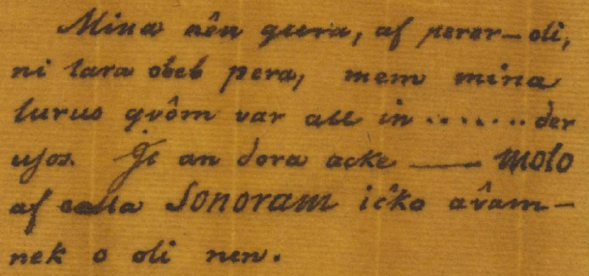 Mina nên gura, af perer-oli,
ni tara obeb pera, mem mina
lurus qvôm var all in ....... der
Je an dora acke — molo
af Sonoram icko avam-
nek o oli nen.